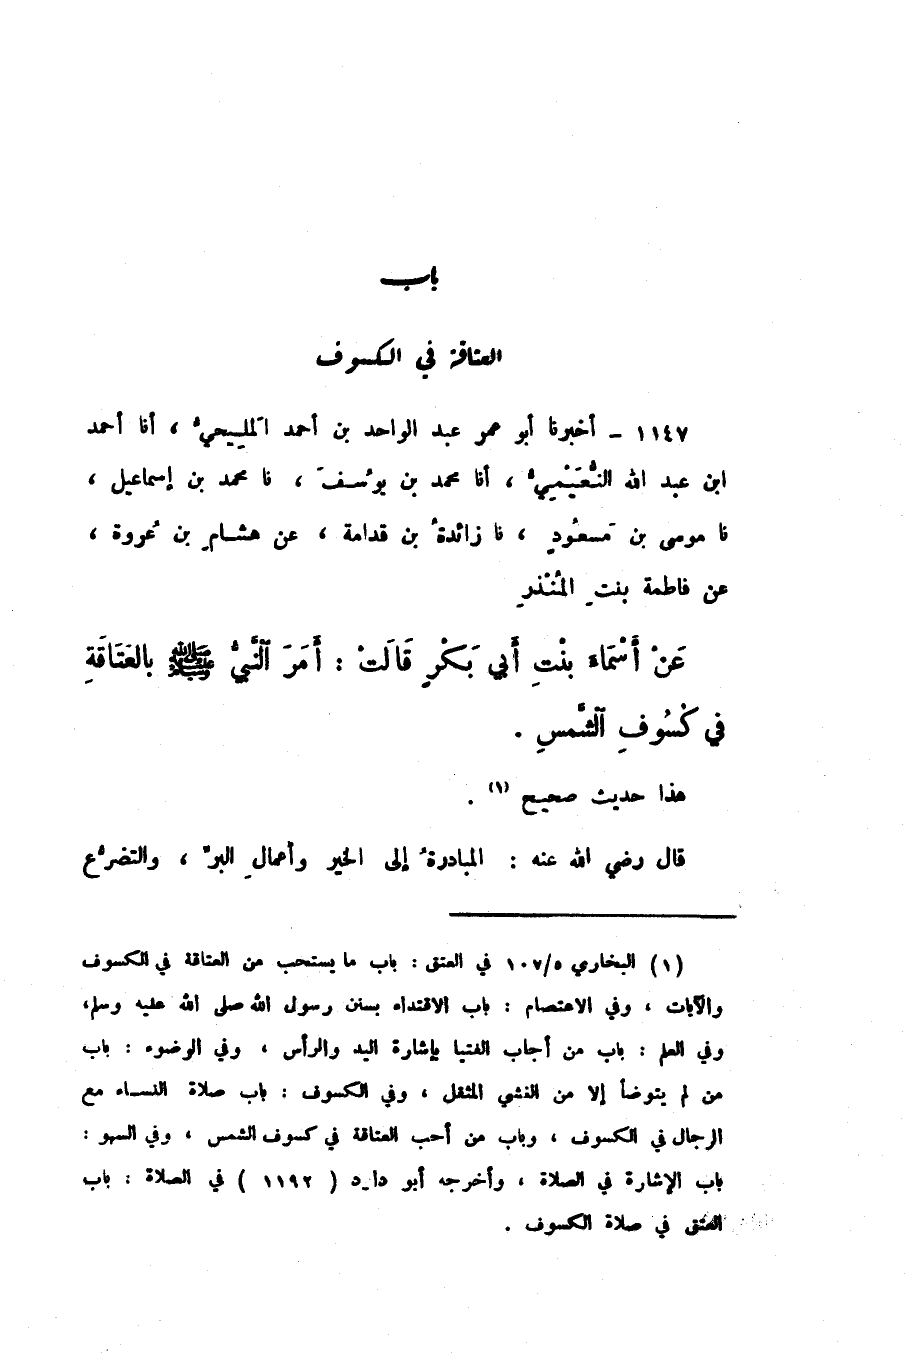 باب
العتاقة في الكسوف
١١٤٧ – أخبرنا أبو عمر عبد الواحد بن أحمد المَليحيُّ ، أنا أحمد
ابن عبد الله النُّعَيْمِيُّ ، أنا محمد بن يوسُفَ ، نا محمد بن إسماعيل ،
نا موسى بن مَسعُودٍ ، نا زائدةُ بن قدامة ، عن هشامِ بن عُروة ،
عن فاطمة بنتِ المُنْذِرِ
عَنْ أَسْمَاءَ بِنْتِ أَبي بَكْرٍ قَالَتْ : أَمَرَ ٱلنَّبِيُّ ﷺ بالعَتَاقَةِ
في كُسُوفِ ٱلشَّمسِ .
هذا حديث صحيح (١) .
قال رضي الله عنه : المبادرةُ إلى الخير وأعمالِ البرِّ ، والتضرُّع
(١) البخاري ١٠٧/٥ في العتق : باب ما يستحب من العتاقة في الكسوف
والآيات ، وفي الاعتصام : باب الاقتداء بسنن رسول الله صلى الله عليه وسلم،
وفي العلم : باب من أجاب الفتيا بإشارة اليد والرأس ، وفي الوضوء : باب
من لم يتوضأ إلا من الغشي المثقل ، وفي الكسوف : باب صلاة النساء مع
الرجال في الكسوف ، وباب من أحب العتاقة في كسوف الشمس ، وفي السهو :
باب الإشارة في الصلاة ، وأخرجه أبو داود ( ١١٩٢ ) في الصلاة : باب
العتق في صلاة الكسوف .